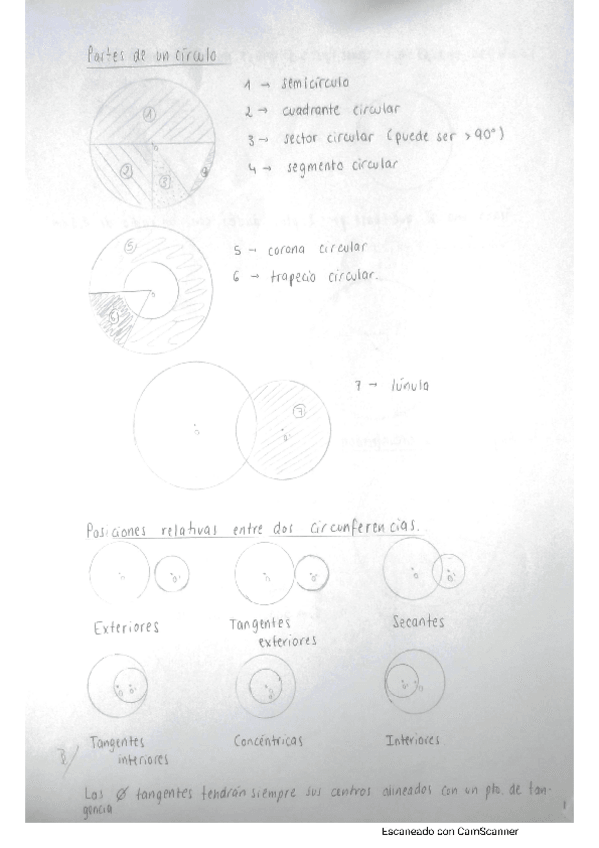 Partes de un círculo
1 → semicírculo
2 → cuadrante circular
3 → sector circular (puede ser >90°)
4 → segmento circular
1
2
3
4
o
5 → corona circular
6 → trapecio circular.
5
6
o
7 → lúnula
7
o
o'
Posiciones relativas entre dos circunferencias.
o o' o o' o o'
Exteriores Tangentes exteriores Secantes
o o' o o' o o'
Tangentes interiores Concéntricas Interiores
Las Ø tangentes tendrán siempre sus centros alineados con un pto. de tan-
gencia
1
Escaneado con CamScanner